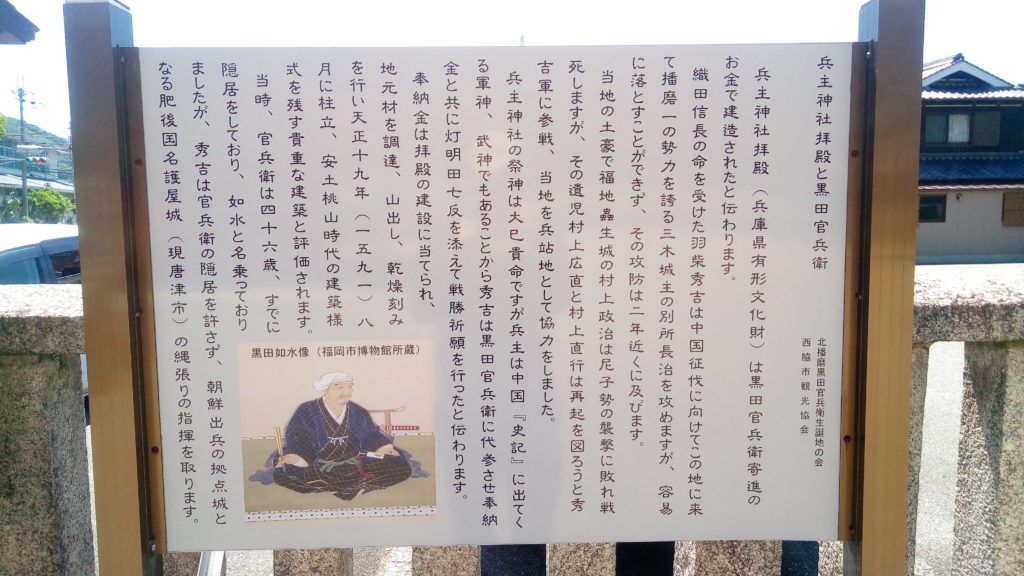 兵主神社拝殿と黒田官兵衛
北播磨黒田官兵衛生誕地の会
西脇市観光協会
兵主神社拝殿（兵庫県有形文化財）は黒田官兵衛寄進の
お金で建造されたと伝わります。
織田信長の命を受けた羽柴秀吉は中国征伐に向けてこの地に来
て播磨一の勢力を誇る三木城主の別所長治を攻めますが、容易
に落とすことができず、その攻防は二年近くに及びます。
当地の土豪で福地蟲生城の村上政治は尼子勢の襲撃に敗れ戦
死しますが、その遺児村上広直と村上直行は再起を図ろうと秀
吉軍に参戦、当地を兵站地として協力をしました。
兵主神社の祭神は大已貴命ですが兵主は中国『史記』に出てく
る軍神、武神でもあることから秀吉は黒田官兵衛に代参させ奉納
金と共に灯明田七反を添えて戦勝祈願を行ったと伝わります。
奉納金は拝殿の建設に当てられ、
地元材を調達、山出し、乾燥刻み
を行い天正十九年（一五九一）八
月に柱立、安土桃山時代の建築様
式を残す貴重な建築と評価されます。
当時、官兵衛は四十六歳、すでに
隠居をしており、如水と名乗っており
ましたが、秀吉は官兵衛の隠居を許さず、朝鮮出兵の拠点城と
なる肥後国名護屋城（現唐津市）の縄張りの指揮を取ります。
黒田如水像（福岡市博物館所蔵）